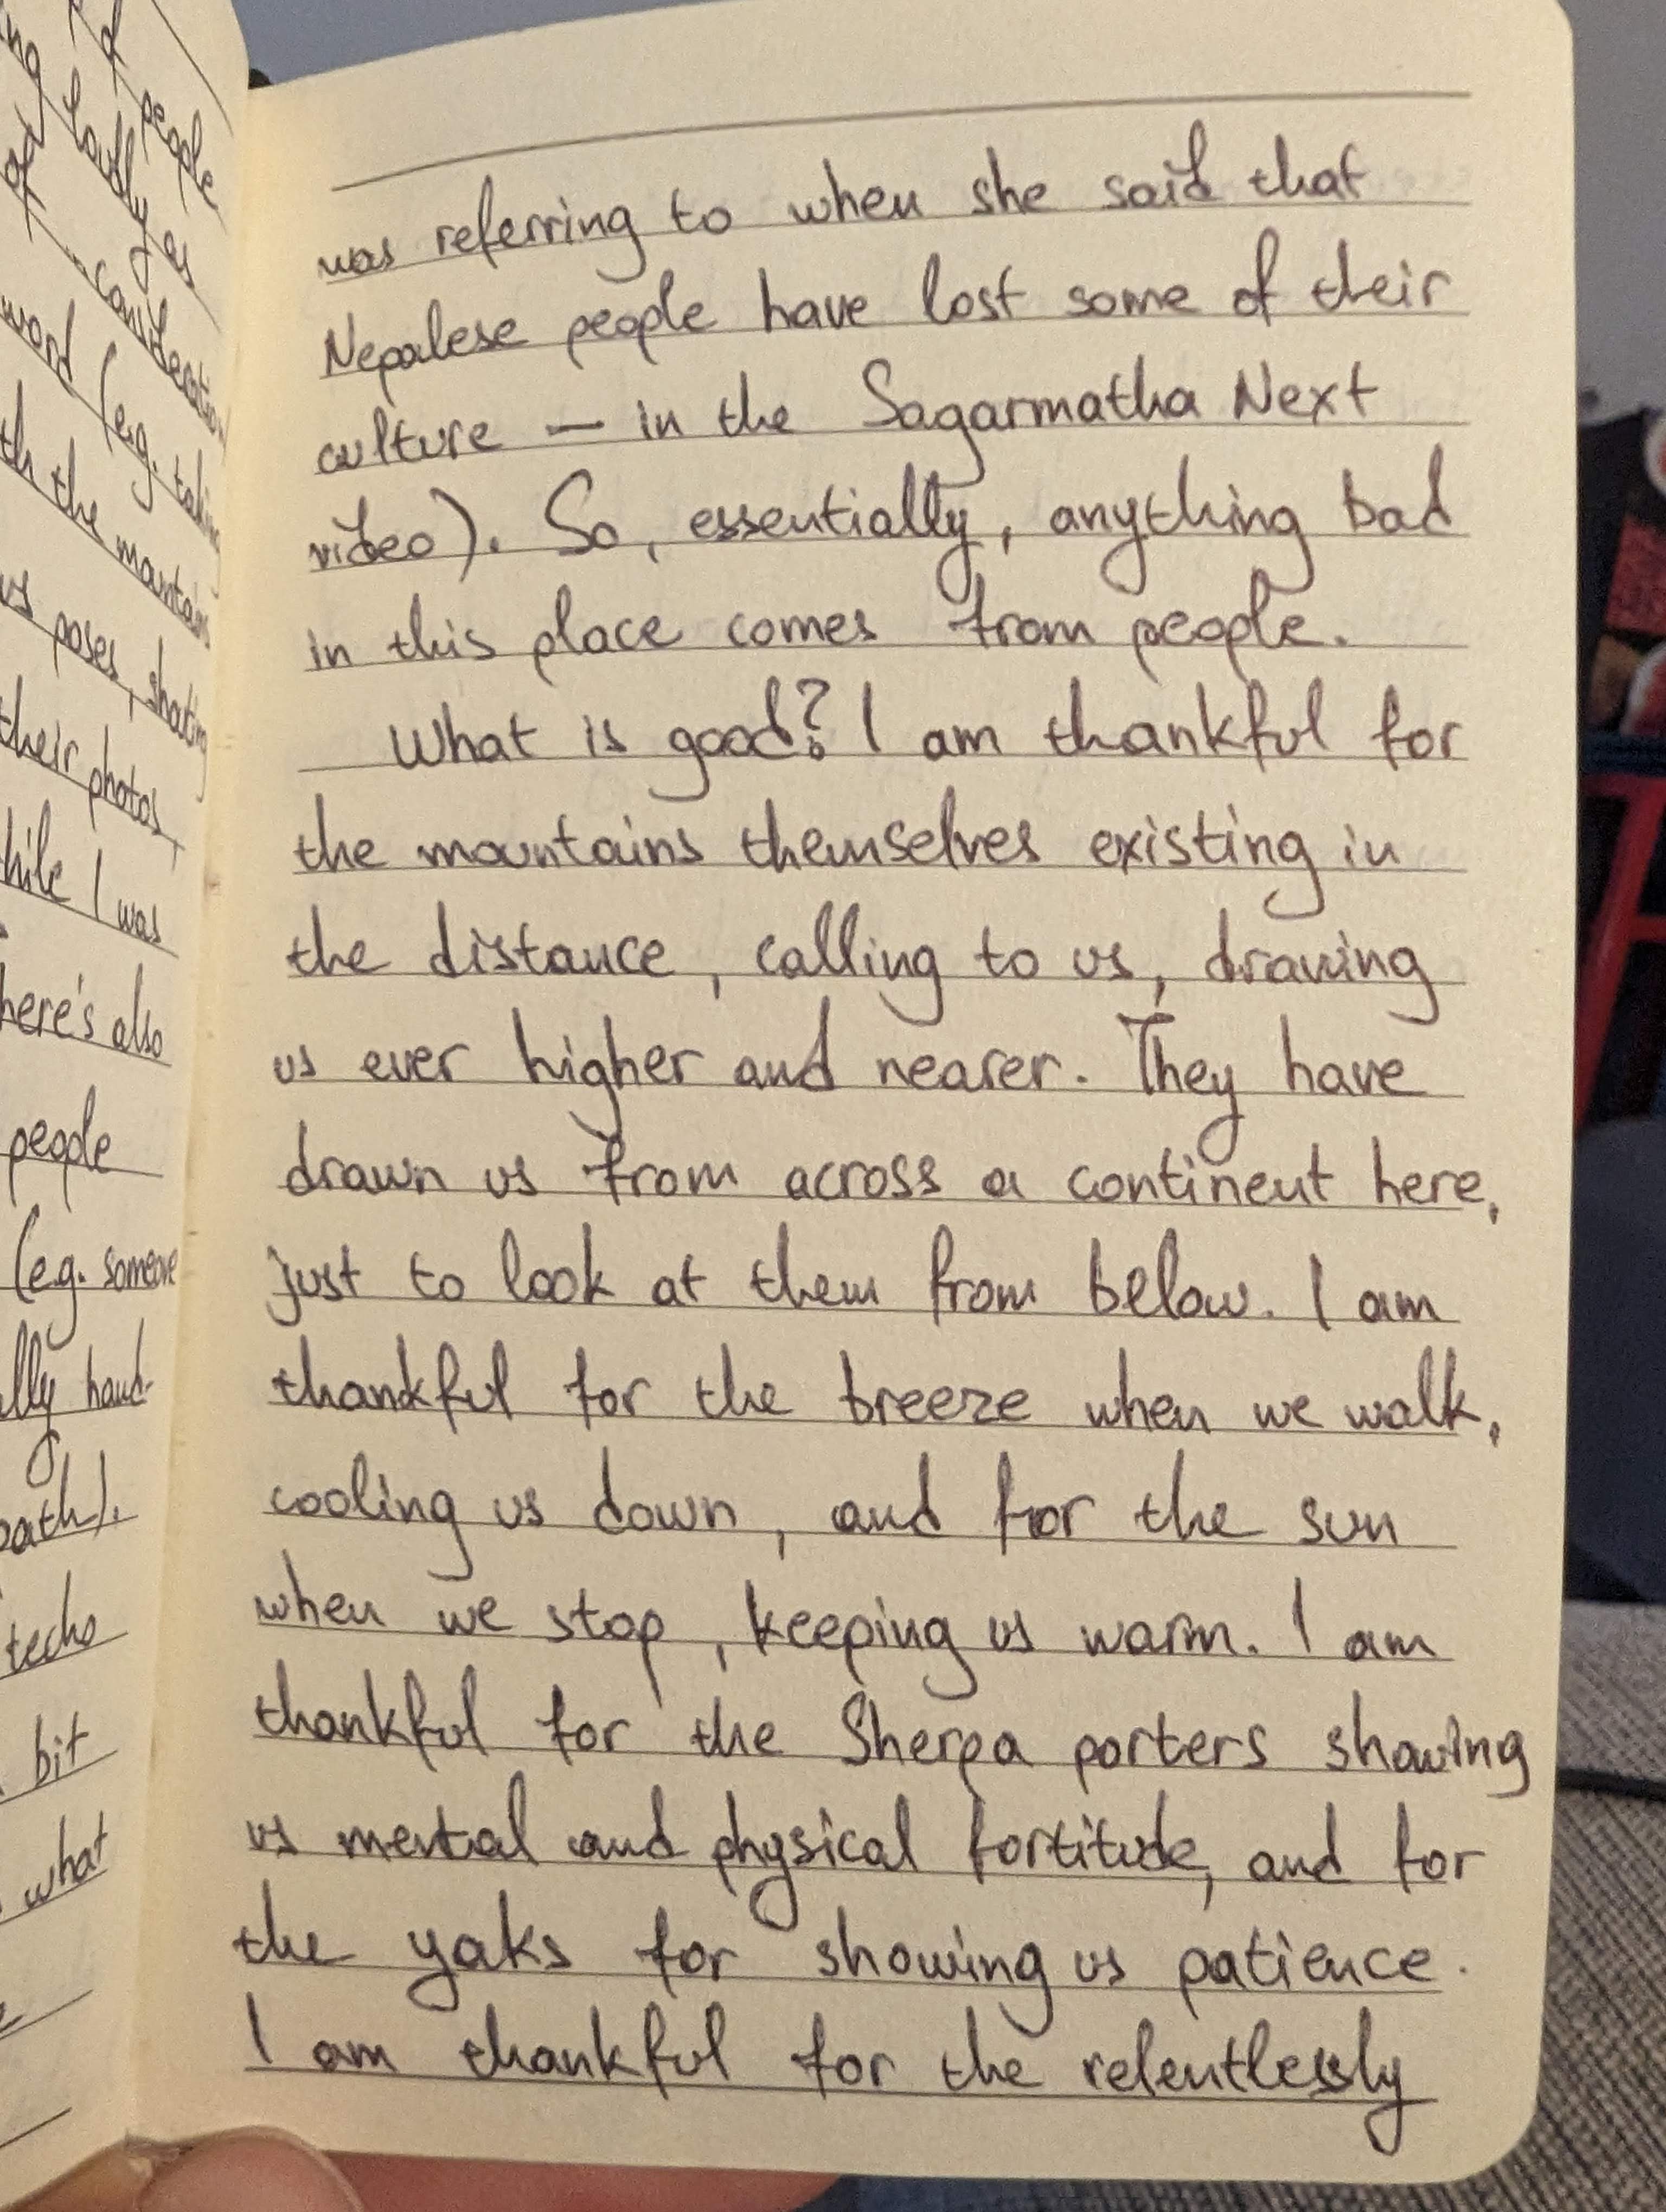 of people
ng loudly as
of consideration
word (e.g. taking
th the mountains
us poses, shating
their photos,
hile I was
here's also
people
(e.g. someone
lly hand-
path).
techo
bit
what
was referring to when she said that
Nepalese people have lost some of their
culture — in the Sagarmatha Next
video). So, essentially, anything bad
in this place comes from people.
What is good? I am thankful for
the mountains themselves existing in
the distance, calling to us, drawing
us ever higher and nearer. They have
drawn us from across a continent here,
just to look at them from below. I am
thankful for the breeze when we walk,
cooling us down, and for the sun
when we stop, keeping us warm. I am
thankful for the Sherpa porters showing
us mental and physical fortitude, and for
the yaks for showing us patience.
I am thankful for the relentlessly